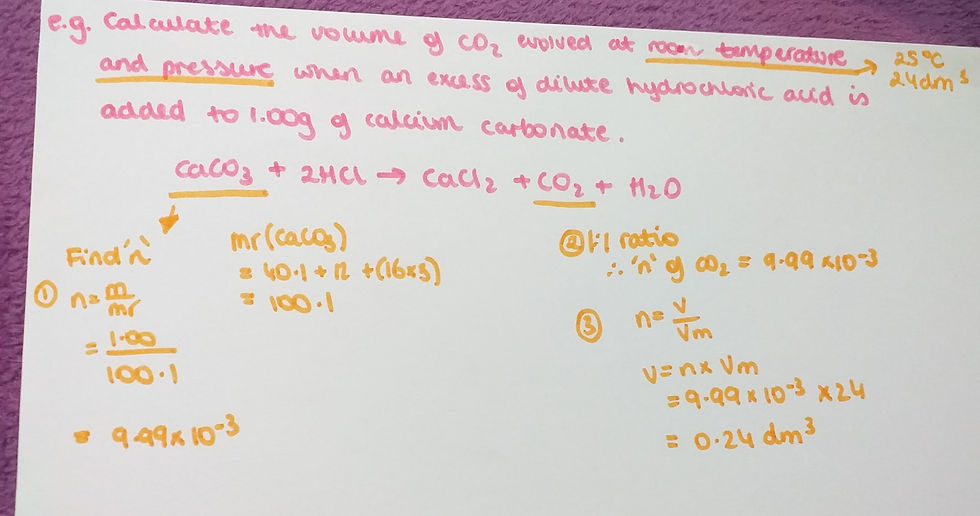 e.g. Calculate the volume of CO₂ evolved at room temperature → 25°C
and pressure when an excess of dilute hydrochloric acid is 24dm³
added to 1.00g of calcium carbonate.
CaCO₃ + 2HCl → CaCl₂ + CO₂ + H₂O
Find 'n'
① n = m/mr
= 1.00/100.1
= 9.99 x 10⁻³
mr (CaCO₃)
= 40.1 + 12 + (16x3)
= 100.1
② 1:1 ratio
∴ 'n' of CO₂ = 9.99 x10⁻³
③ n = V/Vm
V = n x Vm
= 9.99 x 10⁻³ x 24
= 0.24 dm³